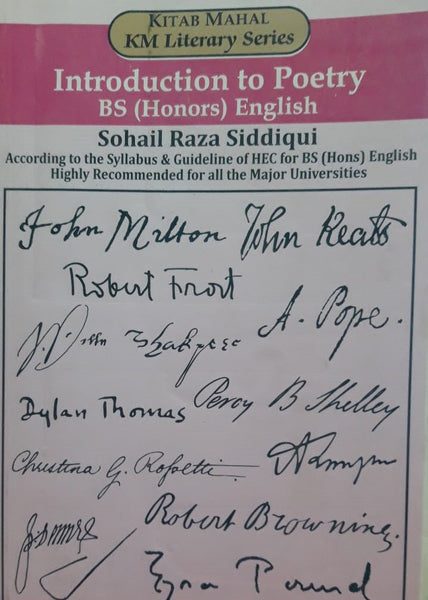 KITAB MAHAL
KM Literary Series
Introduction to Poetry
BS (Honors) English
Sohail Raza Siddiqui
According to the Syllabus & Guideline of HEC for BS (Hons) English
Highly Recommended for all the Major Universities
John Milton John Keats
Robert Frost
A. Pope.
Dylan Thomas Percy B Shelley
Christina G. Rossetti
Robert Browning.
Ezra Pound